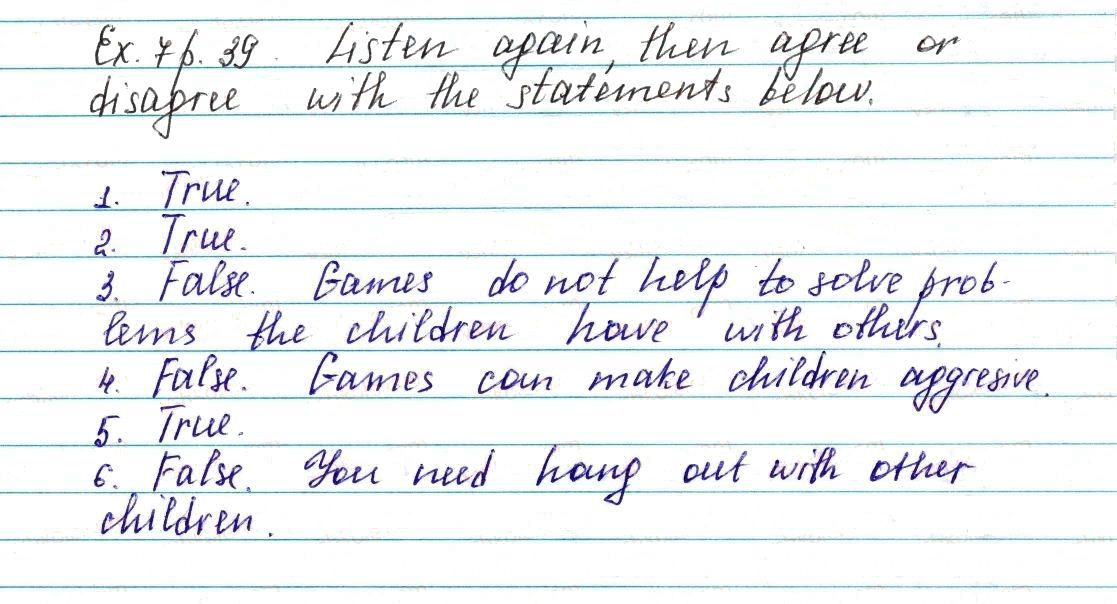 Ex. 7 p. 39. Listen again, then agree or
disagree with the statements below.
1. True.
2. True.
3. False. Games do not help to solve prob-
lems the children have with others.
4. False. Games can make children aggresive.
5. True.
6. False. You need hang out with other
children.